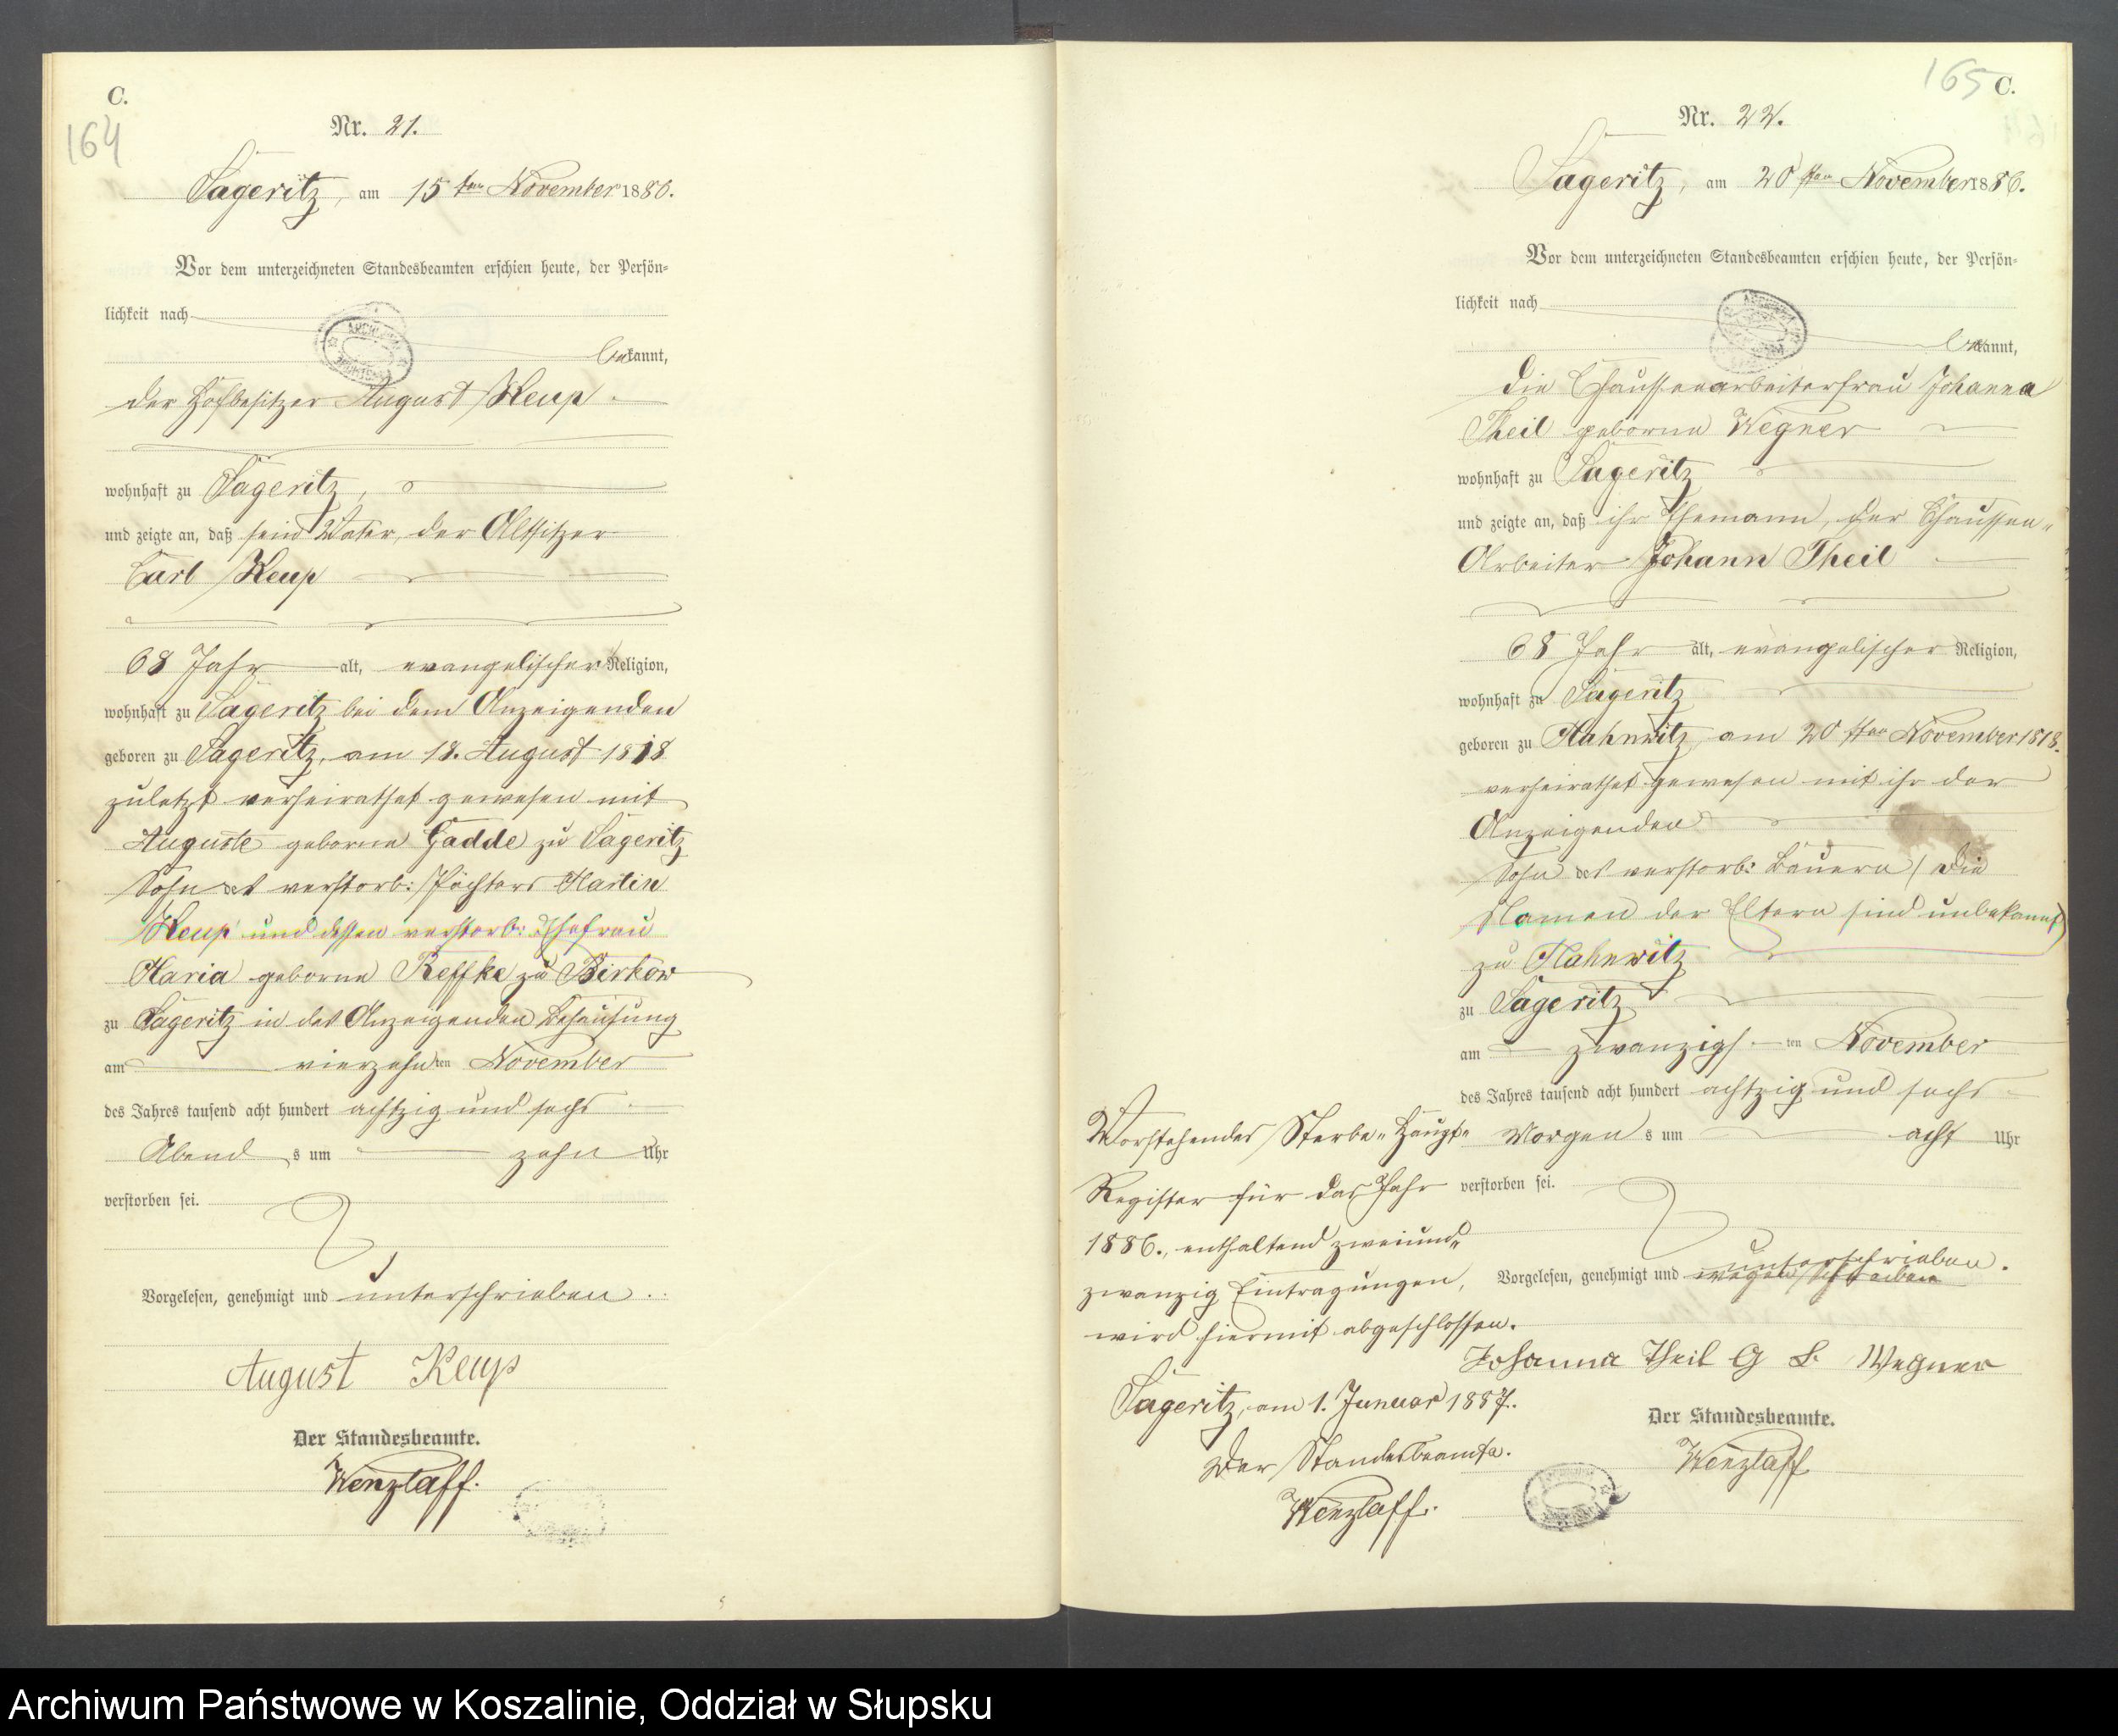 C.
164
Nr. 21.
Sageritz, am 15ten November 1886.
Vor dem unterzeichneten Standesbeamten erschien heute, der Persön-
lichkeit nach
bekannt,
der Hofbesitzer August Keup
wohnhaft zu Sageritz,
und zeigte an, daß sein Vater, der Altsitzer
Carl Keup
68 Jahr alt, evangelischer Religion,
wohnhaft zu Sageritz bei dem Anzeigenden
geboren zu Sageritz, am 18. August 1818
zuletzt verheirathet gewesen mit
Auguste geborne Gadde zu Sageritz
Sohn des verstorb: Pächters Martin
Keup und dessen verstorb: Ehefrau
Maria geborne Reffke zu Birkow
zu Sageritz in des Anzeigenden Behausung
am vierzehnten November
des Jahres tausend acht hundert achtzig und sechs
Abends um zehn Uhr
verstorben sei.
Vorgelesen, genehmigt und unterschrieben.
August Keup
Der Standesbeamte.
Wenzlaff.
165 C.
Nr. 22.
Sageritz, am 20sten November 1886.
Vor dem unterzeichneten Standesbeamten erschien heute, der Persön-
lichkeit nach
bekannt,
die Chausseearbeiterfrau Johanna
Theil geborne Wegner
wohnhaft zu Sageritz
und zeigte an, daß ihr Ehemann, der Chaussee-
Arbeiter Johann Theil
68 Jahr alt, evangelischer Religion,
wohnhaft zu Sageritz
geboren zu Mahnwitz, am 20sten November 1818.
verheirathet gewesen mit ihr der
Anzeigenden
Sohn des verstorb: Bauern (die
Namen der Eltern sind unbekannt)
zu Mahnwitz
zu Sageritz
am zwanzigsten November
des Jahres tausend acht hundert achtzig und sechs
Morgens um acht Uhr
verstorben sei.
Vorgelesen, genehmigt und unterschrieben.
Johanna Theil G b. Wegner
Der Standesbeamte.
Wenzlaff
Vorstehendes Sterbe-Haupt-
Register für das Jahr
1886., enthaltend zweiund-
zwanzig Eintragungen,
wird hiermit abgeschlossen.
Sageritz, am 1. Januar 1887.
Der Standesbeamte.
Wenzlaff.
Archiwum Państwowe w Koszalinie, Oddział w Słupsku